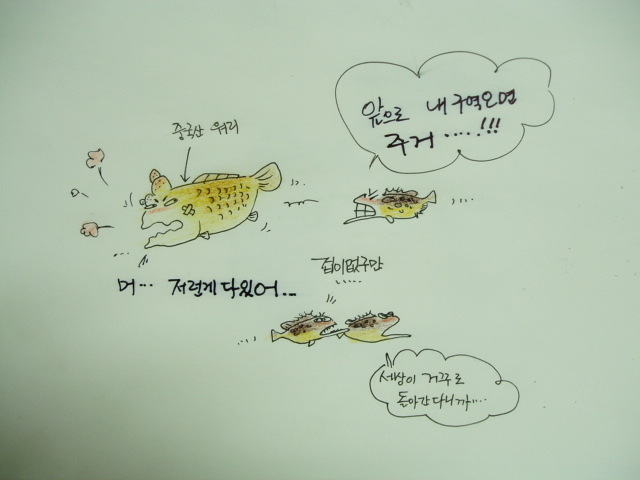 앞으로 내구역오면
주거.....!!!
중국산 워리
머... 저런게 다있어...
겁이없구만
세상이 거꾸로
돌아간다니까....